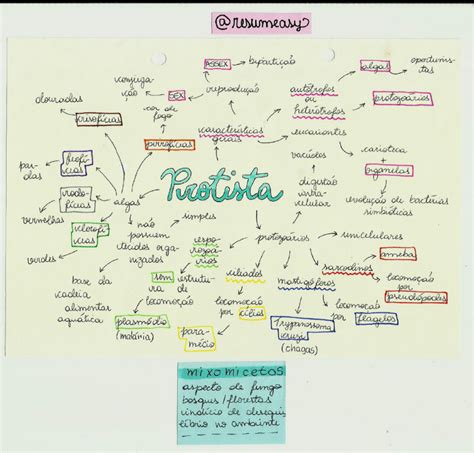 @resumeasy
ASSEX
bipartição
algas
oportunistas
conjugação
SEX
reprodução
autótrofos
ou
heterótrofos
protozoários
douradas
crisofícias
cor de
fogo
pirrofícias
características
gerais
eucariontes
carioteca
+
organelas
feofícias
pardas
vacúolos
Protista
digestão
intracelular
evolução de bactérias
simbióticas
rodofícias
vermelhas
algas
simples
clorofícias
verdes
não
possuem
tecidos organizados
esporozoários
protozoários
unicelulares
ameba
sarcodinos
ciliados
mastigóforos
locomoção
por
pseudópodes
base da
cadeia
alimentar
aquática
sem
estrutura de
locomoção
locomoção
por
cílios
locomoção
por
flagelos
plasmódio
(malária)
paramécio
Trypanossoma
cruzi
(chagas)
mixomicetos
aspecto de fungo
bosques/florestas
indício de desequilíbrio no ambiente